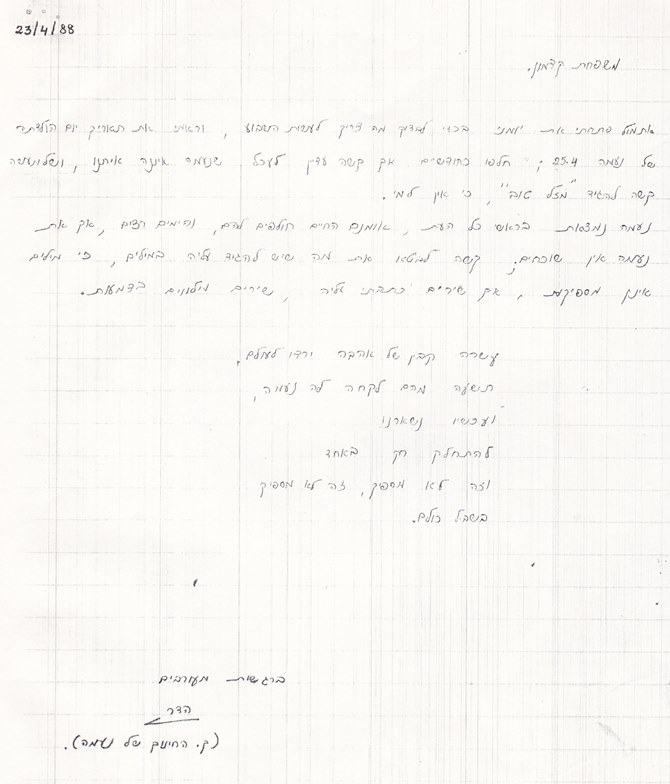 23/4/88
משפחת קדמון.
אתמול פתחתי את יומני בכדי לבדוק מה צריך לעשות השבוע, וראיתי את תאריך יום הולדתה
של נעמה 25.4; חלפו כחודשיים אך קשה עדין לעכל שנעמה איננה איתנו,
קשה להגיד "מזל טוב", כי אין למי.
נעמה נמצאת בראש כל העת, אומנם החיים חולפים להם, והימים רצים, אך את
נעמה אין שוכחים; קשה לבטא את מה שיש להגיד עליה במילים, כי מילים
אינן מספיקות, אך שירים כתבתי עליה, שירים מלווים בדמעות.
עשרה קבין של אהבה ירדו לעולם,
תשעה מהם לקחה לה נעמה,
ועכשיו נשארנו
להתחלק רק באחד
וזה לא מספק, זה לא מספיק
בשביל כולם.
ברגשות מעורבים
הדר
(ק. החינוך של נעמה).